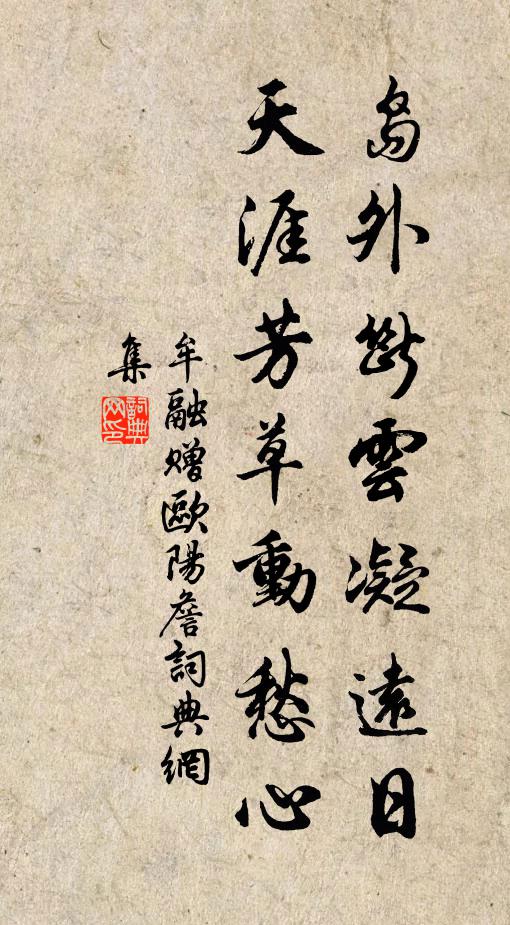 島外斷雲凝遠日
天涯芳草動愁心
牟融贈歐陽詹詞典網
集
詞典
网印